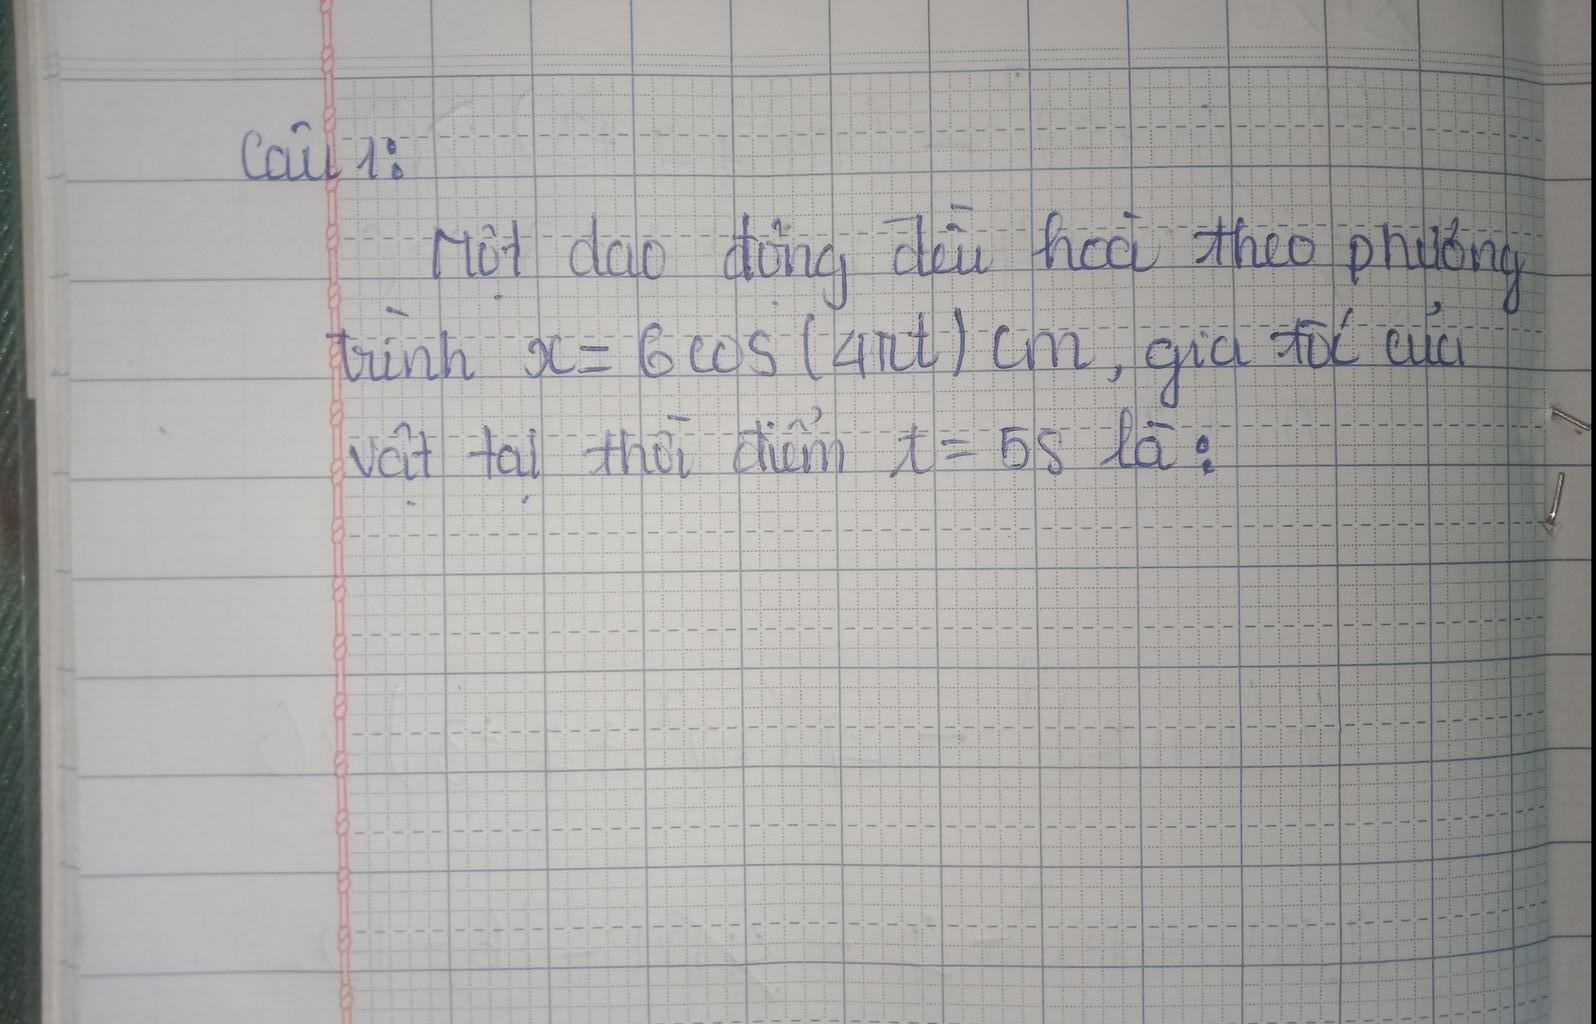 Câu 1:
Một dao động đều hoà theo phương
trình x = 6cos(4πt) cm, gia tốc của
vật tại thời điểm t = 5s là: